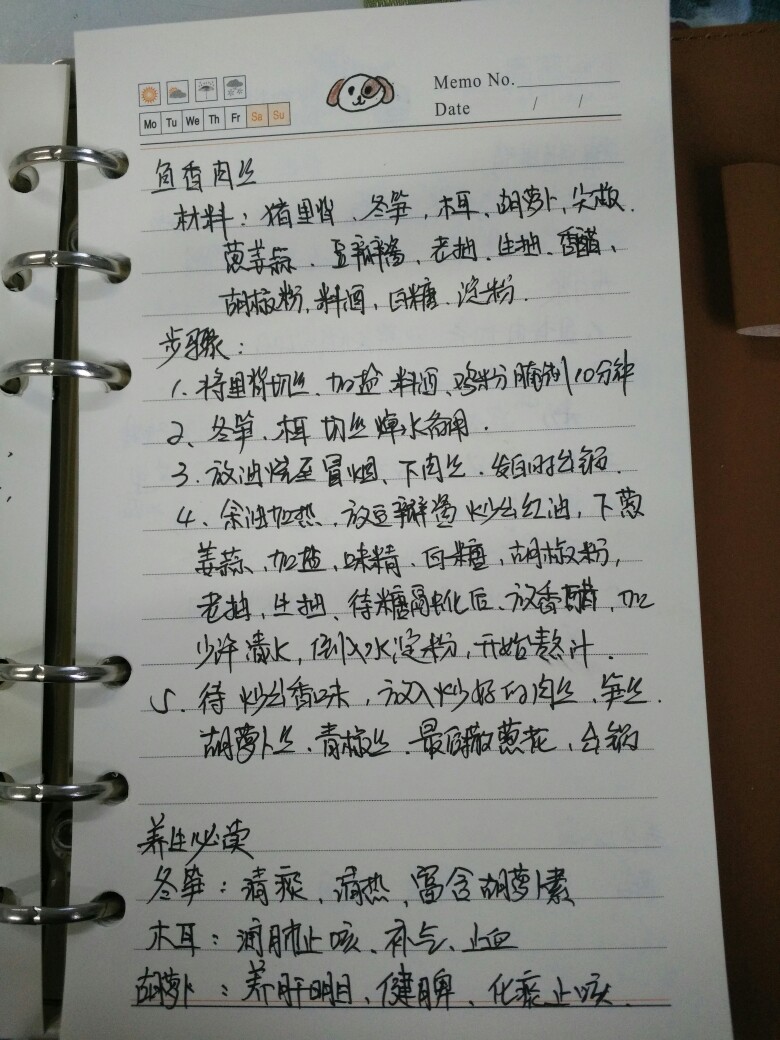 Memo No.
Mo Tu We Th Fr Sa Su
Date / /
鱼香肉丝
材料：猪里脊、冬笋，木耳、胡萝卜，尖椒.
葱姜蒜、豆瓣酱、老抽、生抽、香醋、
胡椒粉，料酒，白糖、淀粉.
步骤：
1、将里脊切丝、加盐、料酒、鸡粉腌制10分钟
2、冬笋、木耳切丝焯水备用.
3、放油烧至冒烟、下肉丝、发白时出锅.
4、余油加热，放豆瓣酱炒出红油，下葱
姜蒜、加盐，味精、白糖，胡椒粉，
老抽，生抽、待糖融化后、放香醋，加
少许清水，倒入水淀粉，开始熬汁.
5. 待炒出香味，放入炒好的肉丝、笋丝.
胡萝卜丝、青椒丝、最后撒葱花，出锅
养生必读
冬笋：清痰、清热、富含胡萝卜素
木耳：润肺止咳、补气、止血
胡萝卜：养肝明目、健脾、化痰止咳.